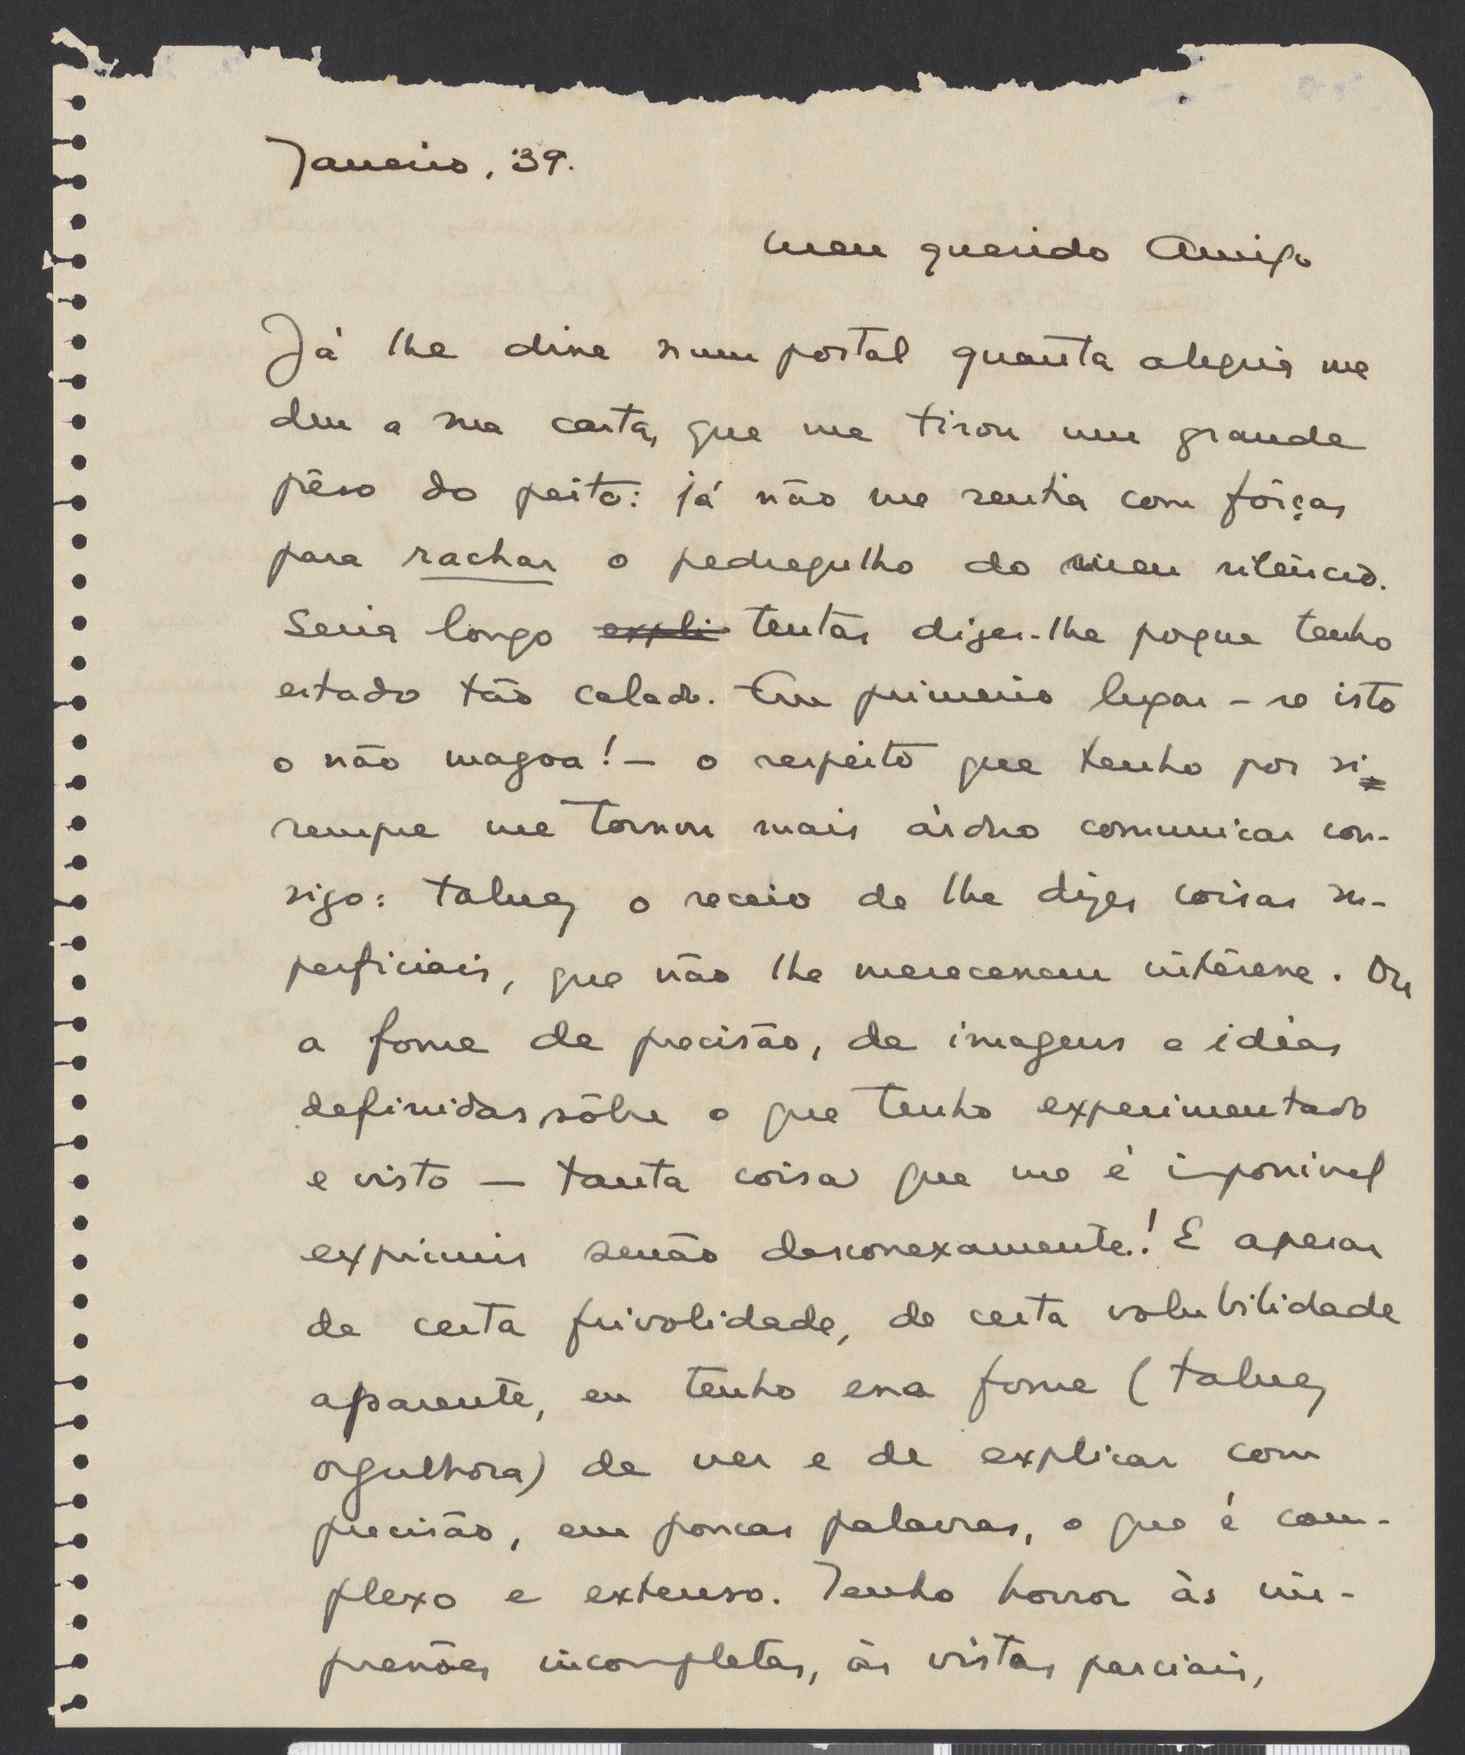 Janeiro, '39.
Meu querido Amigo
Já lhe disse num postal quanta alegria me
deu a sua carta, que me tirou um grande
pêso do peito: já não me sentia com fôrças
para rachar o pedregulho do meu silêncio.
Seria longo expli tentar dizer-lhe porque tenho
estado tão calado. Em primeiro lugar – se isto
o não magoa! – o respeito que tenho por si
sempre me tornou mais árduo comunicar con-
sigo: talvez o receio de lhe dizer coisas su-
perficiais, que não lhe merecessem interêsse. Ou
a fome de precisão, de imagens e idéias
definidas sôbre o que tenho experimentado
e visto – tanta coisa que me é impossível
exprimir senão desconexamente! E apesar
de certa frivolidade, de certa volubilidade
aparente, eu tenho essa fome (talvez
orgulhosa) de ver e de explicar com
precisão, em poucas palavras, o que é com-
plexo e extenso. Tenho horror às im-
pressões incompletas, às vistas parciais,